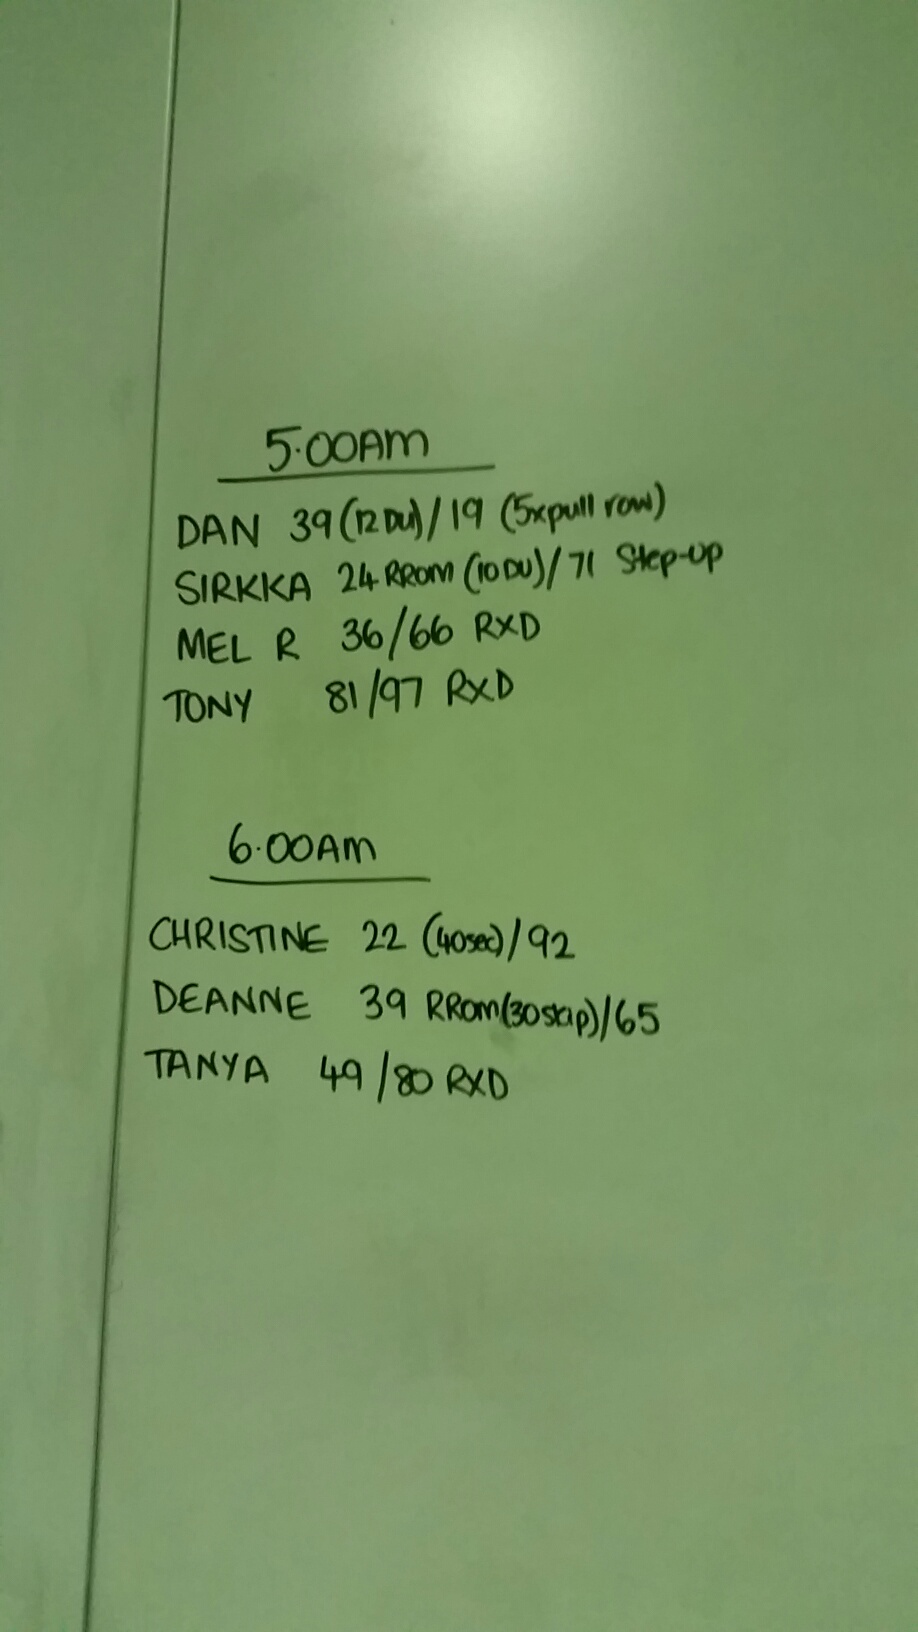 5.00AM
DAN 39 (12 DU)/19 (5xpull row)
SIRKKA 24 RROM (10 DU)/71 Step-UP
MEL R 36/66 RXD
TONY 81/97 RXD
6.00AM
CHRISTINE 22 (40sec)/92
DEANNE 39 RROM(30skip)/65
TANYA 49/80 RXD